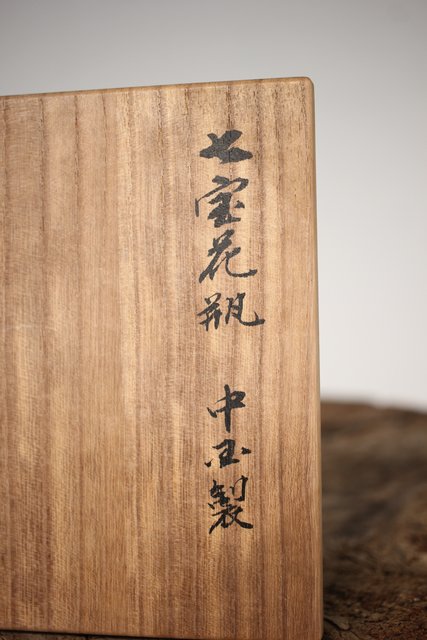 七宝花瓶 中国製